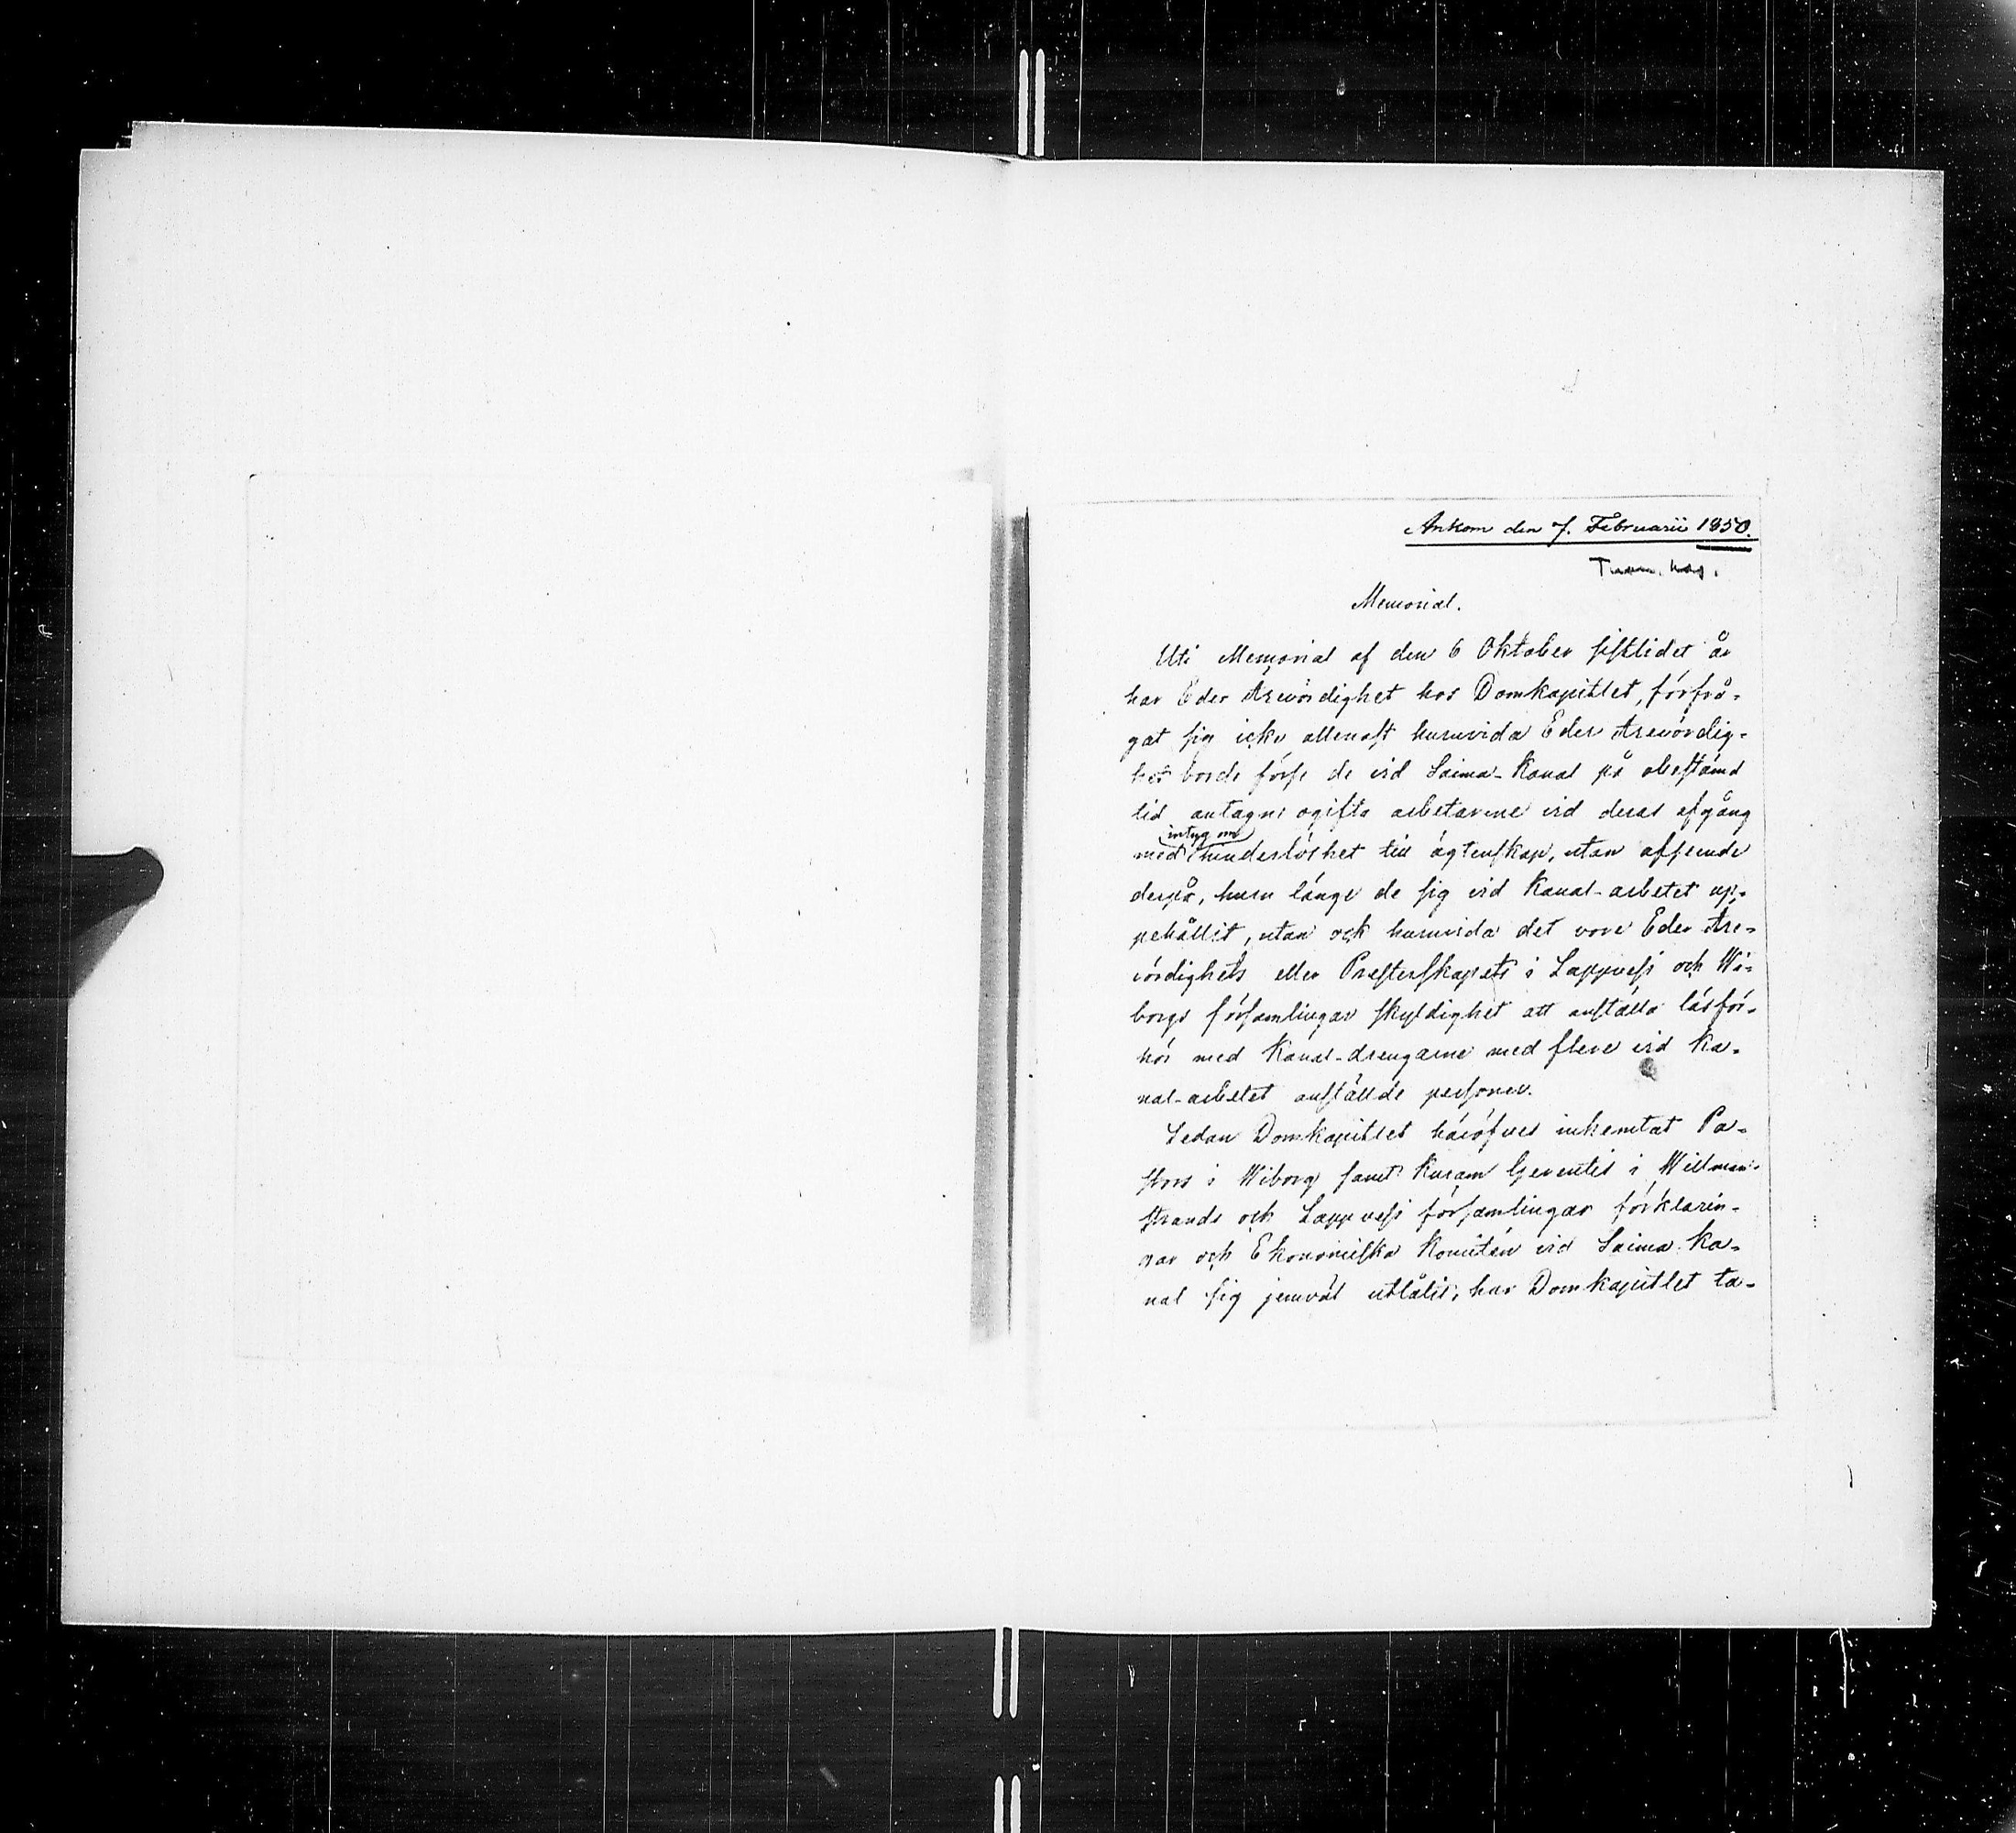 Ankom den 7. Februarii 1850.
Memorial.
Uti Memorial af den 6 Oktober sistlidet år
har Eder Arevördighet hos Domkapitlet, förfrå-
gat sig icke allenast huruvida Eder Arevördig-
het borde förse de vid Saima-Kanal på obestämd
tid antagne ogifta arbetarene vid deras afgång
intyg om
med hinderlöshet till ägtenskap, utan afseende
derpå, huru länge de sig vid Kanal-arbetet up-
pehållit, utan ock huruvida det vore Eder Are-
vördighets eller Presterskapets i Lappvesi och Wi-
borgs församlingar skyldighet att anställa läsför-
hör med Kanal-drengarne med flere vid Ka-
nal-arbetet anställde personer.
Sedan Domkapitlet häröfver inhemtat Pa-
stors i Wiborg samt Kuram Gerentis i Willman-
strands och Lappvesi församlingar förklarin-
gar och Ekonomiska Komitén vid Saima Ka-
nal sig jemväl utlåtit, har Domkapitlet ta-